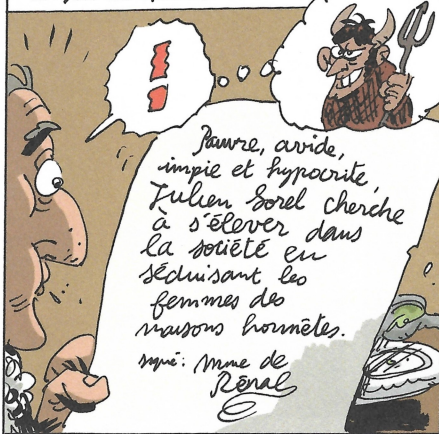 !
Pauvre, avide,
impie et hypocrite,
Julien Sorel cherche
à s'élever dans
la société en
séduisant les
femmes des
maisons honnêtes.
signé: Mme de
Rênal